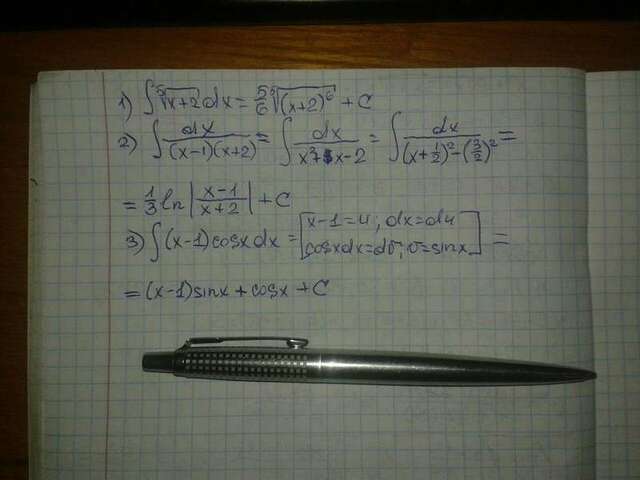 1) ∫ ⁵√(x+2) dx = 5/6 ⁵√((x+2)⁶) + C
2) ∫ dx/((x-1)(x+2)) = ∫ dx/(x²+x-2) = ∫ dx/((x+1/2)²-(3/2)²) =
= 1/3 ln |(x-1)/(x+2)| + C
3) ∫ (x-1)cosx dx = [x-1=u; dx=du
cosxdx=dv; v=sinx] =
= (x-1)sinx + cosx + C